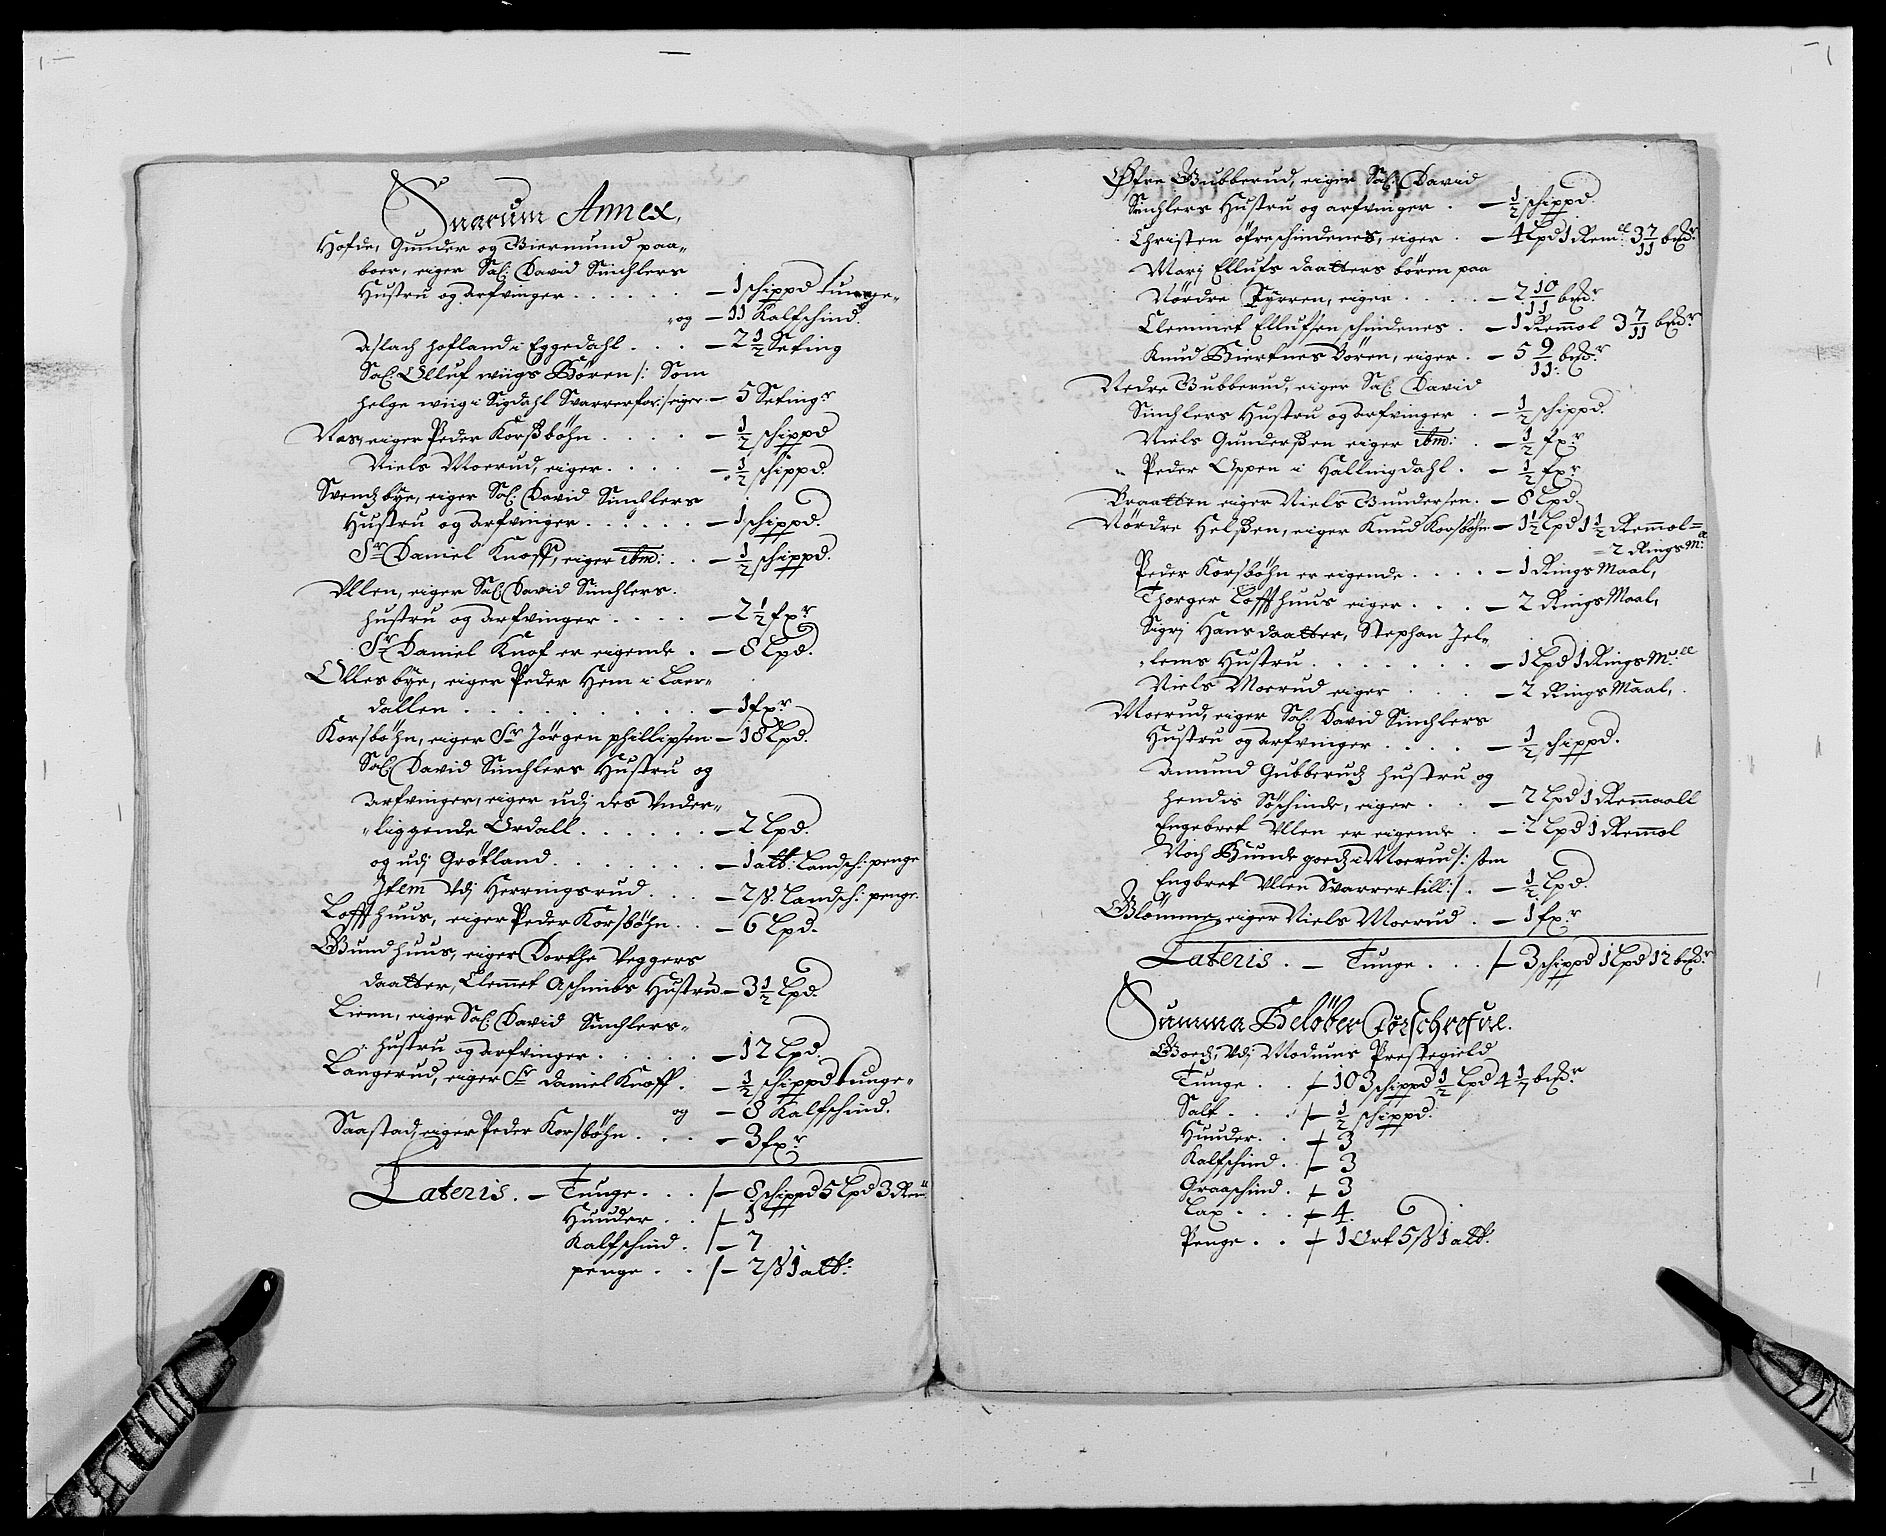 Snarum Annex,
Hofde, Gunder og Biermund paa-
boer, eiger Sal: David Sinchlers
Hustru og arfvinger . . . . . . — 1 schippd tunge,,
,,og — 11 Kalfschind.
Aslach hofland i Eggedahl . . . — 2½ Seting
Sal: Olluf wiigs Bören /: Som
helge wiig i Sigdahl Svarrer for :/ eiger — 5 Setingr
Nas, eiger Peder Korsbøhn . . . . — ½ schippd
Niels Moerud, eiger . . . . — ½ schippd.
Svendsbye, eiger Sal: David Sinchlers
Hustru og arfvinger . . . . . . — 1 schippd.
Sr Daniel Knoff, eiger ibm: . . — ½ schippd.
Ullen, eiger Sal: David Sinchlers.
hustru og arfvinger . . . . — 2½ fxr
Sr Daniel Knof er eigende . — 8 Lpd.
Ollesbye, eiger Peder Hem i Laer-
dallen . . . . . . . . . — 1 fxr
Korsbøhn, eiger Sr Jörgen phillipsen — 18 Lpd.
Sal: David Sinchlers Hustru og
arfvinger, eiger udj des Under-
,,liggende Ordall . . . . . . — 2 Lpd.
og udj Grötland . . . . . . . — 1 alb: Landsch: penge
Item Udj Herringsrud . . . — 2 ß. Landsch: penge.
Loffthuus, eiger Peder Korsbøhn . . — 6 Lpd.
Gundhuus, eiger Dorthe Veggers
daatter, Clemmet Aschmibs Hustru — 3½ Lpd.
Lienn, eiger Sal: David Sinchlers-
hustru og arfvinger . . . . . — 12 Lpd.
Langerud, eiger Sr Daniel Knoff . — ½ schippd tunge,,
og — 8 Kalfschind.
Saastad, eiger Peder Korsbøhn . . . — 3 fxr
Lateris . — Tunge . . . /— 8 schippd 5 Lpd 3 Rem
Huuder . . /— 1
Kalfschind . /— 7
penge . . /— 2 ß 1 alb:
Øfre Gubberud, eiger Sal: David
Sinchlers Hustru og arfvinger . — ½ schippd.
Christen öfreschindenes, eiger . — 4 Lpd 1 Rem: 3 7/11 bxdr
Marj Ellufs daatters bören paa
Nördre Fyrren, eiger . . . . — 2 10/11 bxdr
Clemmet Ellufsen schindenes . — 1 Remol 3 7/11 bxdr
Knud Bierknes Bören, eiger . — 5 9/11 bxdr
Nedre Gubberud, eiger Sal: David
Sinchlers Hustru og arfvinger . — ½ schippd.
Niels Gundersen eiger ibm: . — ½ fxr
Peder Oppen i Hallingdahl . — ½ fxr
Braatten eiger Niels Gundersen . — 8 Lpd.
Nördre Helsen, eiger Knud Korsbøhn — 1½ Lpd 1½ Remol=
= 2 Rings M:
Peder Korsbøhn er eigende . . . . — 1 Rings Maal,
Thorger Loffthuus eiger . . . — 2 Rings Maal,
Sigrj Hansdaatter, Stephan Jel-
,,lems Hustru . . . . . . . — 1 Lpd 1 Rings M:ll
Niels Moerud eiger . . . — 2 Rings Maal,
Moerud, eiger Sal: David Sinchlers
Hustru og arfvinger . . . . — ½ schippd.
Amund Gubberuds hustru og
hendis Söschinde, eiger . . — 2 Lpd 1 Remmaall
Engebret Ullen er eigende . — 2 Lpd 1 Remol
Noch Bunde goeds i Moerud /: som
Engbret Ullen Svarrer till :/ . — ½ Lpd.
Glömme, eiger Niels Moerud . — 1 fxr
Lateris . — Tunge . . . /— 3 schippd 1 Lpd 12 bxdr
Summa Beløber forschrefne.
Goeds, Udj Modums Prestegield
Tunge . . /— 103 schippd ½ Lpd 4½ bxdr
Salt . . . /— ½ schippd.
Huuder . . /— 3
Kalfschind . /— 3
Graaschind . /— 3
Lax . . . /— 4.
Penge . . /— 1 Ort 5 ß 1 alb.